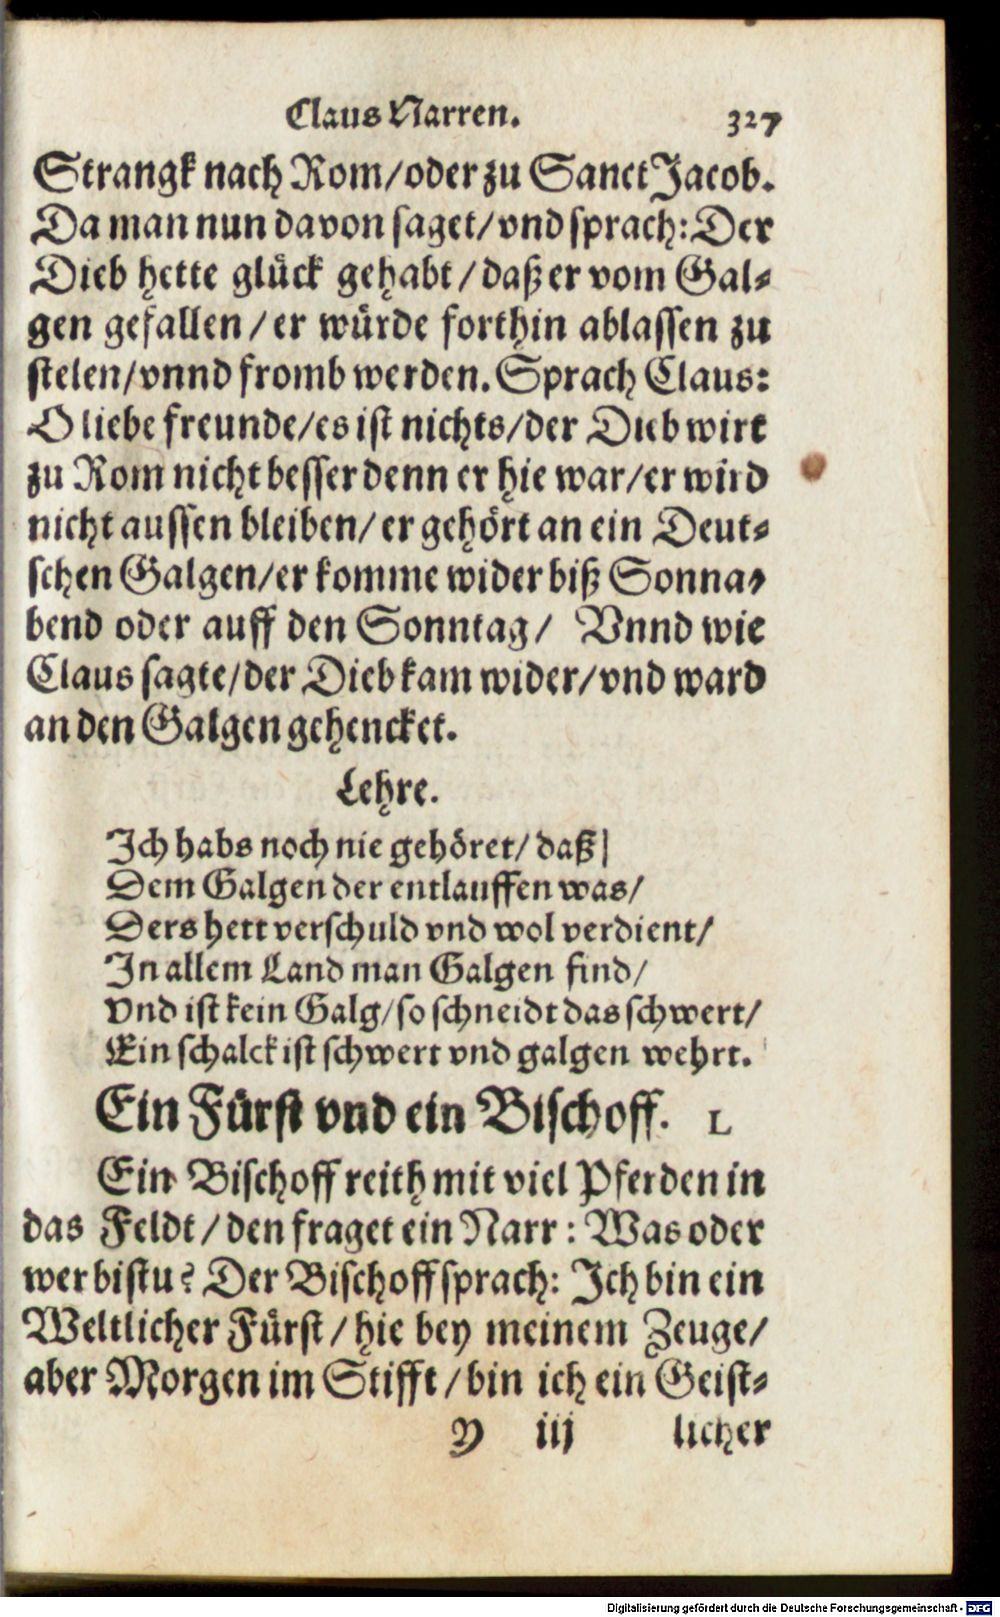 Claus Narren. 327
Strangk nach Rom/oder zu Sanct Jacob.
Da man nun davon saget/vnd sprach: Der
Dieb hette glück gehabt/daß er vom Gal-
gen gefallen/er würde forthin ablassen zu
stelen/vnnd fromb werden. Sprach Claus:
O liebe freunde/es ist nichts/der Dieb wirt
zu Rom nicht besser denn er hie war/er wird
nicht aussen bleiben/er gehört an ein Deut-
schen Galgen/er komme wider biß Sonna-
bend oder auff den Sonntag/ Vnnd wie
Claus sagte/der Dieb kam wider/vnd ward
an den Galgen gehencket.
Lehre.
Ich habs noch nie gehöret/daß
Dem Galgen der entlauffen was/
Ders hett verschuld vnd wol verdient/
In allem Land man Galgen find/
Vnd ist kein Galg/so schneidt das schwert/
Ein schalck ist schwert vnd galgen wehrt.
Ein Fürst vnd ein Bischoff. L
Ein Bischoff reith mit viel Pferden in
das Feldt/den fraget ein Narr: Was oder
wer bistu? Der Bischoff sprach: Ich bin ein
Weltlicher Fürst/hie bey meinem Zeuge/
aber Morgen im Stifft/bin ich ein Geist-
Y iij licher
Digitalisierung gefördert durch die Deutsche Forschungsgemeinschaft - DFG